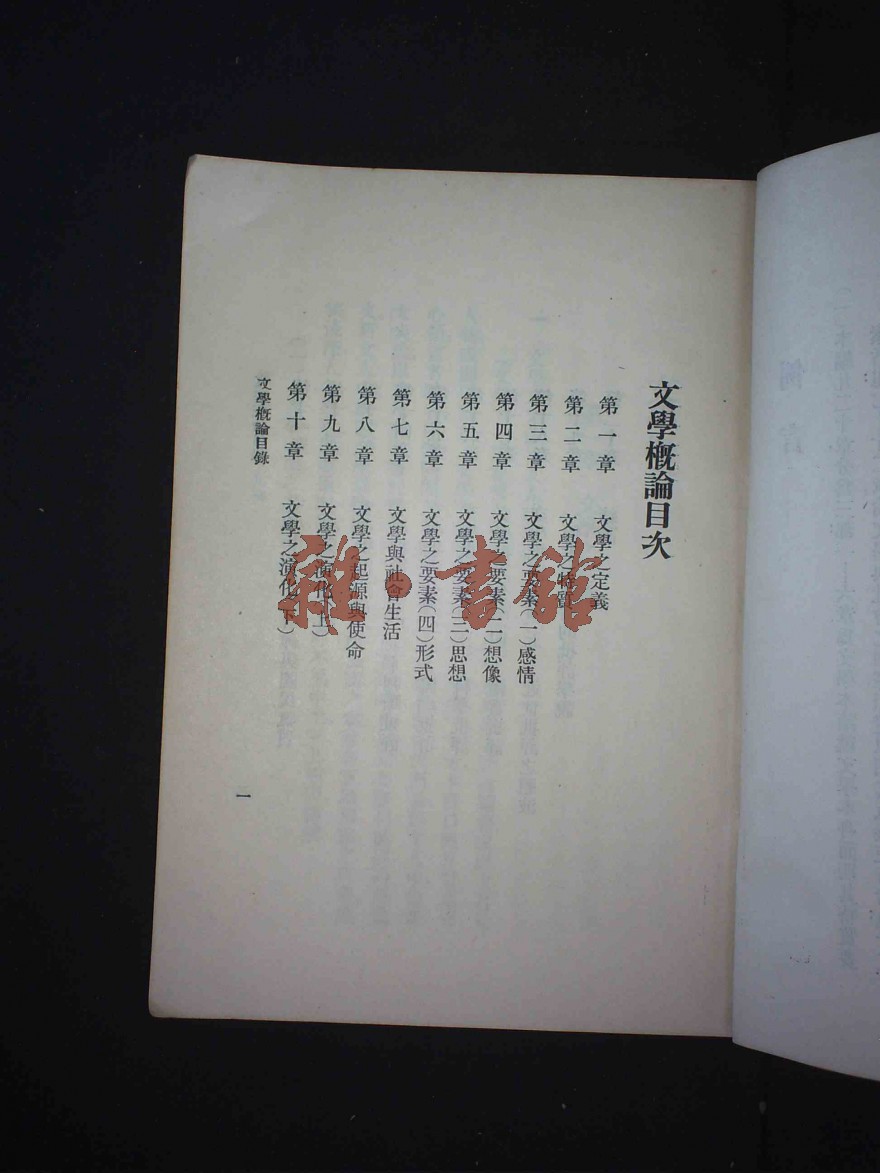 文學槪論目次
第一章　文學之定義
第二章　文學之特質
第三章　文學之要素(一)感情
第四章　文學之要素(二)想像
第五章　文學之要素(三)思想
第六章　文學之要素(四)形式
第七章　文學與社會生活
第八章　文學之起源與使命
第九章　文學之演化(上)
第十章　文學之演化(下)
文學槪論目錄
一
雜·書館